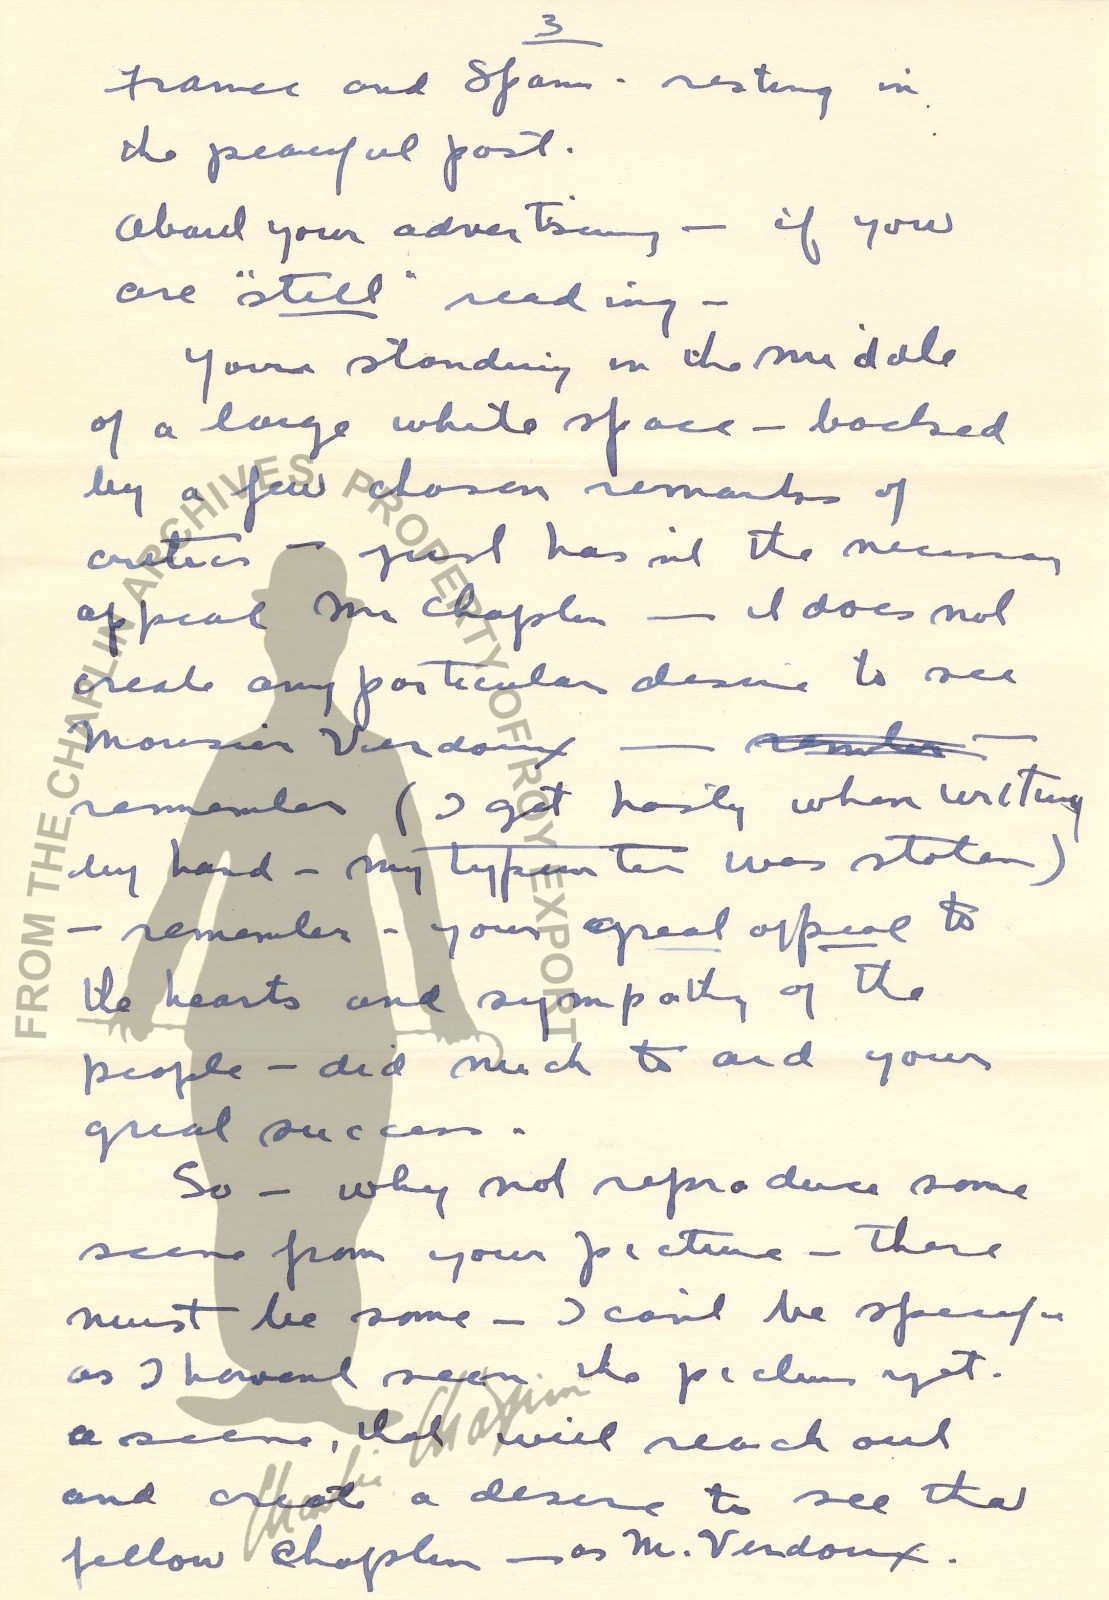 3
France and Spain - resting in
the peaceful past.
About your advertising — if you
are "still" reading —
Your standing in the middle
of a large white space — backed
by a few chosen remarks of
critics — just hasn't the necessary
appeal Mr Chaplin — it does not
create any particular desire to see
Monsieur Verdoux —
remember (I get hasty when writing
by hand — my typewriter was stolen)
— remember - your great appeal to
the hearts and sympathy of the
people — did much to aid your
great success.
So — why not reproduce some
scene from your picture — there
must be some — I can't be specific
as I havent seen the picture yet.
a scene, that will reach out
and create a desire to see that
fellow Chaplin — as M. Verdoux.
FROM THE CHAPLIN ARCHIVES, PROPERTY OF ROY EXPORT
Charlie Chaplin